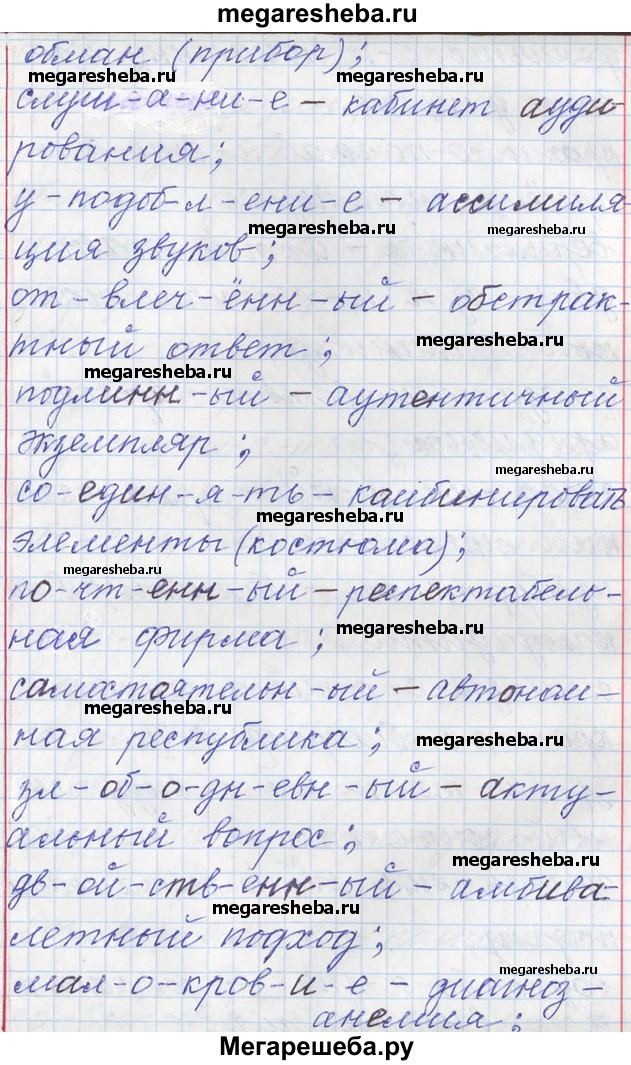 megaresheba.ru
обман (прибор);
megaresheba.ru megaresheba.ru
слуш-а-ни-е – кабинет ауди-
рования;
megaresheba.ru
у-подоб-л-ени-е – ассимиля-
megaresheba.ru
ция звуков;
megaresheba.ru
от-влеч-ённ-ый – обстрак-
тный ответ;
megaresheba.ru
megaresheba.ru
подлинн-ый – аутентичный
экземпляр;
megaresheba.ru
со-един-я-ть – комбинировать
megaresheba.ru
элементы (костюма);
megaresheba.ru
по-чт-енн-ый – респектабель-
ная фирма;
megaresheba.ru
самостоятельн-ый – автоном-
megaresheba.ru
ная республика;
megaresheba.ru
зл-об-о-дн-евн-ый – акту-
альный вопрос;
megaresheba.ru
дв-ой-ств-енн-ый – амбива-
megaresheba.ru
летный подход;
megaresheba.ru
мал-о-кров-и-е – диагноз-
анемия;
Мегарешеба.ру